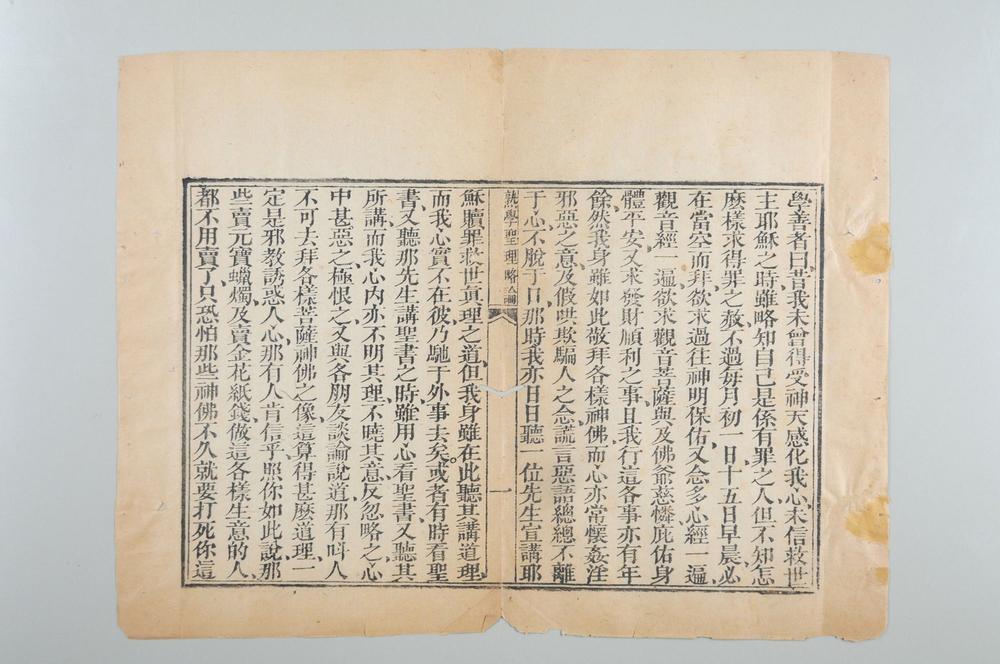 學善者曰昔我未曾得受神天感化我心未信救世
主耶穌之時雖略知自己是係有罪之人但不知怎
麽樣求得罪之赦不過每月初一日十五日早晨必
在當空而拜欲求過往神明保佑又念多心經一遍
觀音經一遍欲求觀音菩薩與及佛爺慈憐庇佑身
體平安又求發財順利之事且我行這各事亦有年
餘然我身雖如此敬拜各樣神佛而心亦常懷姦淫
邪惡之意及假哄欺騙人之念謊言惡語總總不離
于心不脫于口那時我亦日日聽一位先生宣講耶
熟學聖理略論 一
穌贖罪救世眞理之道但我身雖在此聽其講道理
而我心實不在彼乃馳于外事去矣或者有時看聖
書又聽那先生講聖書之時雖用心看聖書又聽其
所講而我心內亦不明其理不曉其意反忽略之心
中甚惡之極恨之又與各朋友談論說道那有呌人
不可去拜各樣菩薩神佛之像這算得甚麽道理一
定是邪教誘惑人心那有人肯信乎照你如此說那
些賣元寶蠟燭及賣金花紙錢做這各樣生意的人
都不用賣了只恐怕那些神佛不久就要打死你這